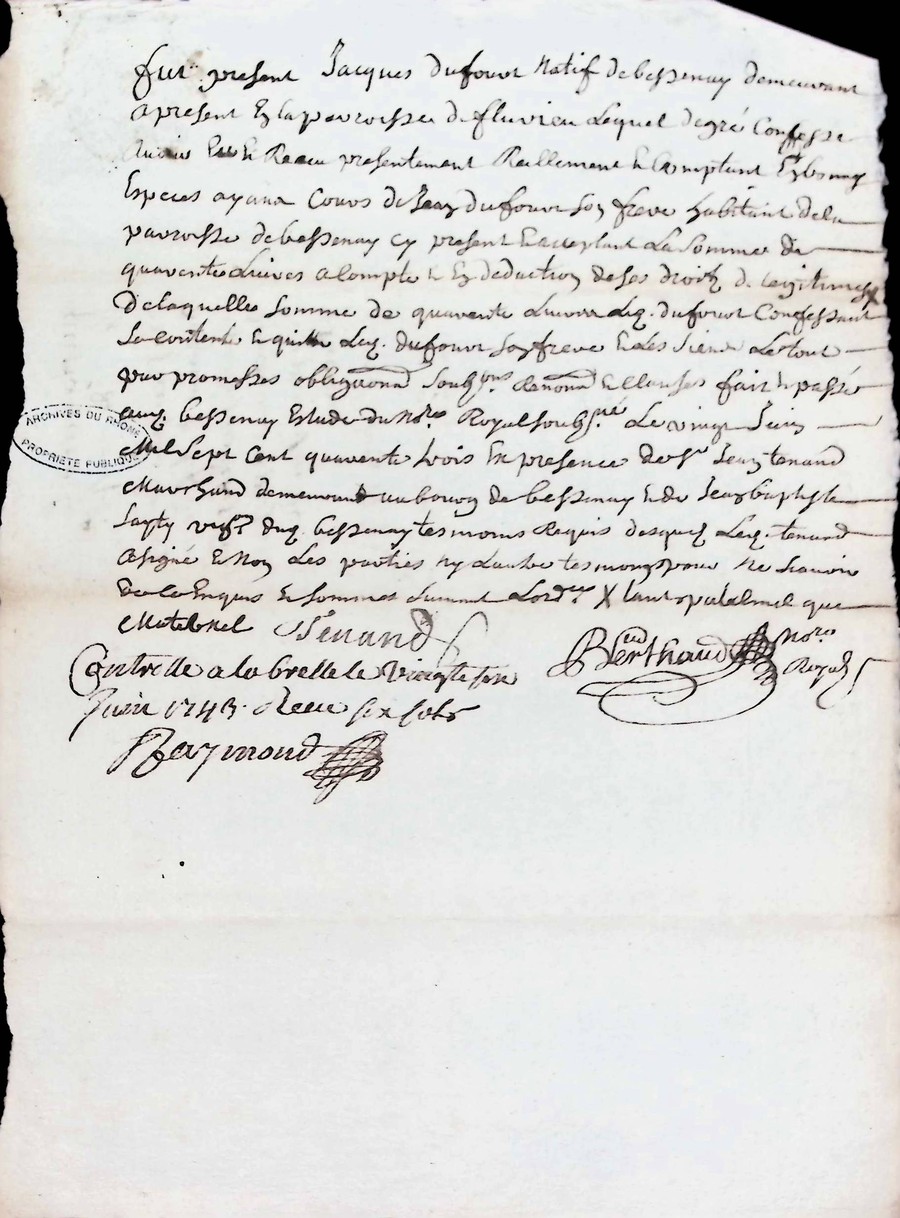 fut present Jacques dufour Natif de bessenay demeurant
a present En la parroisse de fluvieu Lequel de gré Confesse
avoir Eu et Receu presentement Reellement et Comptant En bonnes
Especes ayant Cours de Jean dufour son frere habitant de la
parroisse de bessenay cy present et acceptant La somme de
quarente Livres a Compte et En deduction de ses droits de legitimes X
De laquelle somme de quarente Livres Led. dufour Confessant
Se contente et quitte Led. dufour son frere et Les siens Le tout
par promesses obligaons soubons Renonaons et clauses fait et passé
aud. bessenay Estude du Nore Royal soubsné Le vingt Juin
Mil Sept Cent quarente trois En presence de Sr Jean tenand
Marchand demeurant au bourg de bessenay et de Jean baptiste
vign dud. bessenay tesmoins Requis desquels Led. tenand
a signé et Non Les parties ny L'autre tesmoing pour ne sçavoir
de ce Enquis et sommés suivant L'ordce X tant paternel que
Maternel Tenand
Berthaud Nore Royal
Controllé a la brelle le Vingt six
Juin 1743. Receu six sols
Raymond
ARCHIVES DU RHÔNE
PROPRIÉTÉ PUBLIQUE